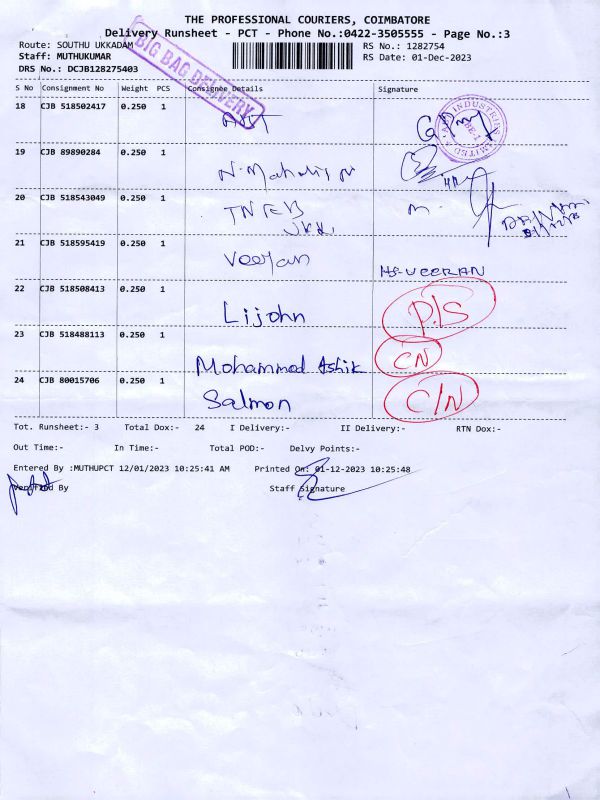 THE PROFESSIONAL COURIERS, COIMBATORE
Delivery Runsheet - PCT - Phone No.:0422-3505555 - Page No.:3
Route: SOUTHU UKKADAM RS No.: 1282754
Staff: MUTHUKUMAR RS Date: 01-Dec-2023
DRS No.: DCJB128275403
BIG BAG DELIVERY
S No Consignment No Weight PCS Consignee Details Signature
18 CJB 518502417 0.250 1
19 CJB 89890284 0.250 1
20 CJB 518543049 0.250 1 TNEB
21 CJB 518595419 0.250 1 Veeran M.VEERAN
22 CJB 518508413 0.250 1 Lijohn P/S
23 CJB 518488113 0.250 1 Mohammed Ashik CN
24 CJB 80015706 0.250 1 Salmon C/N
Tot. Runsheet:- 3 Total Dox:- 24 I Delivery:- II Delivery:- RTN Dox:-
Out Time:- In Time:- Total POD:- Delvy Points:-
Entered By :MUTHUPCT 12/01/2023 10:25:41 AM Printed On: 01-12-2023 10:25:48
Verified By Staff Signature